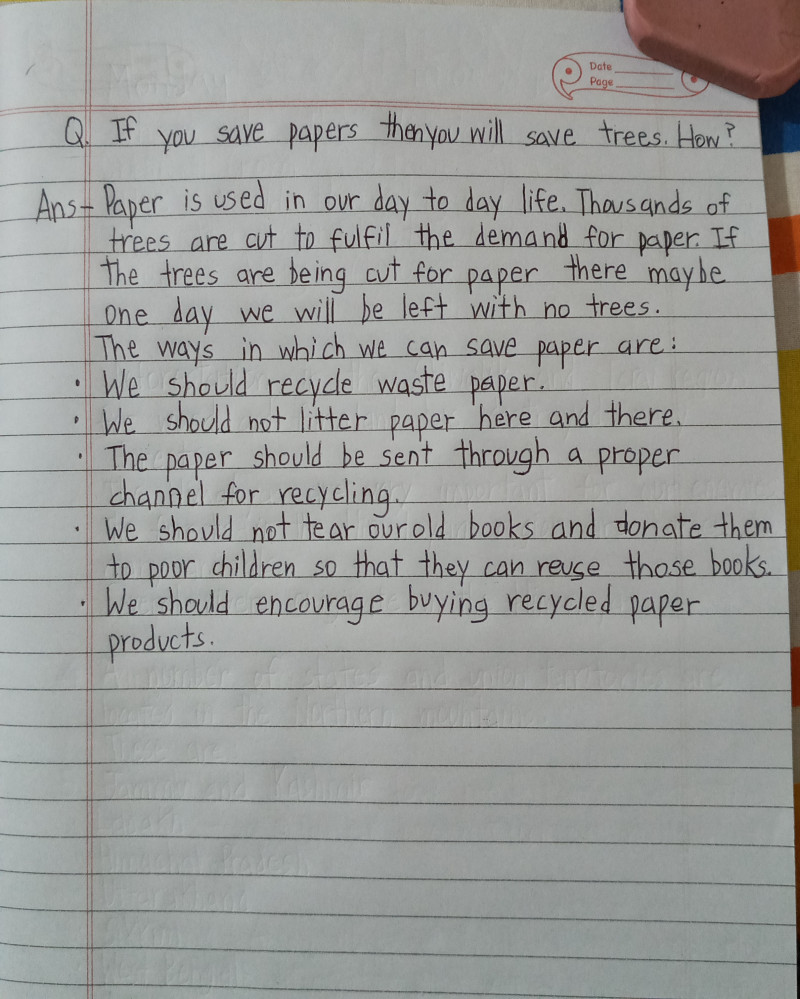 Date
Page
Q. If you save papers then you will save trees. How?
Ans- Paper is used in our day to day life. Thousands of
trees are cut to fulfil the demand for paper. If
the trees are being cut for paper there maybe
one day we will be left with no trees.
The ways in which we can save paper are:
• We should recycle waste paper.
• We should not litter paper here and there.
• The paper should be sent through a proper
channel for recycling.
• We should not tear our old books and donate them
to poor children so that they can reuse those books.
• We should encourage buying recycled paper
products.